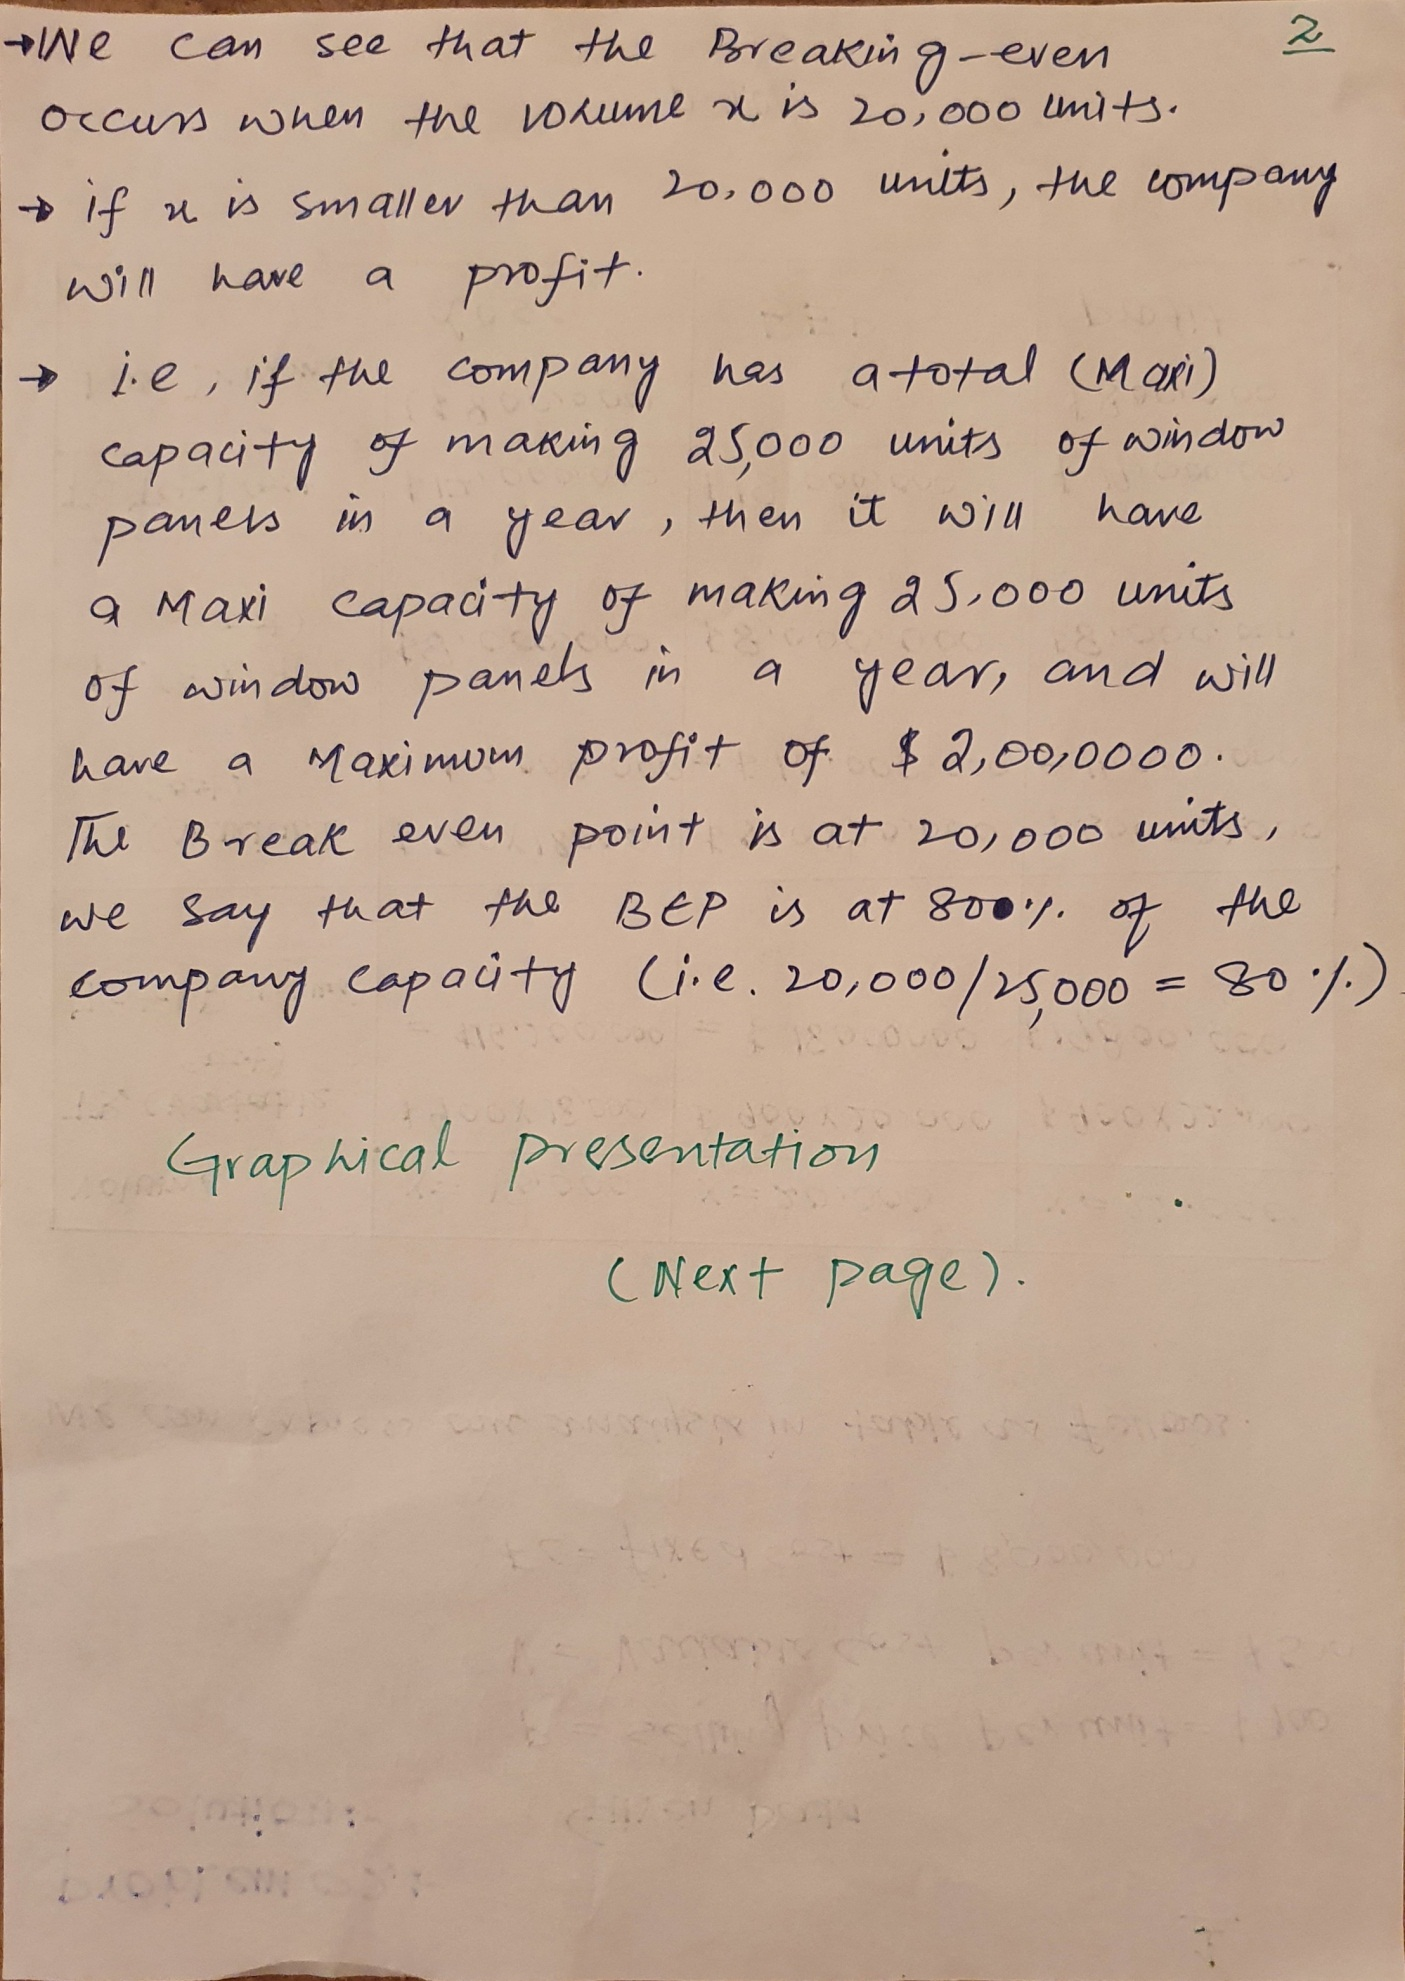 2
→We can see that the Breaking-even
occurs when the volume x is 20,000 units.
→ if x is smaller than 20,000 units, the company
will have a profit.
→ i.e, if the company has a total (Maxi)
capacity of making 25,000 units of window
panels in a year, then it will have
a Maxi capacity of making 25,000 units
of window panels in a year, and will
have a Maximum profit of $ 2,00,0000.
The Break even point is at 20,000 units,
we say that the BEP is at 800% of the
company capacity (i.e. 20,000/25,000 = 80%)
Graphical presentation
(Next page).